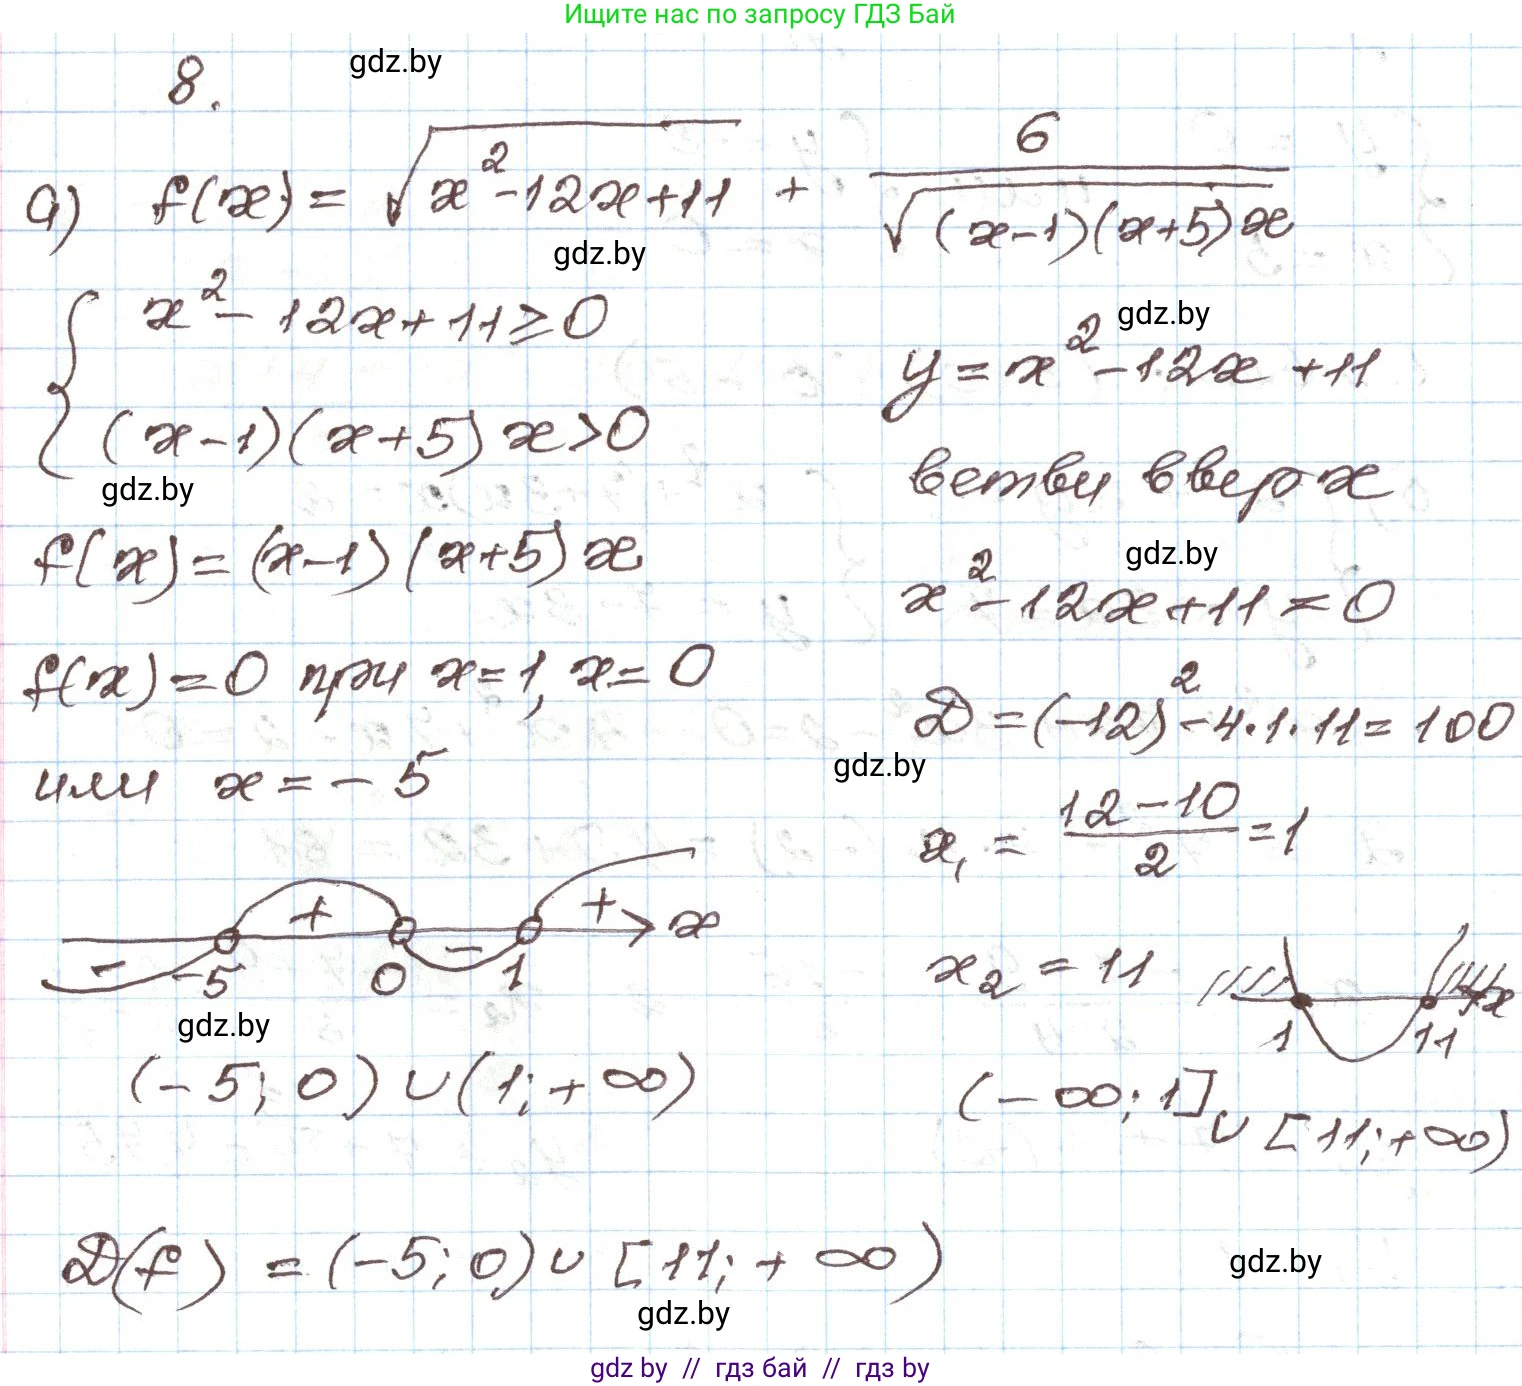 Ищите нас по запросу ГДЗ Бай
8.
gdz.by
а) f(x) = √(x² - 12x + 11) + 6/√((x-1)(x+5)x)
gdz.by
{ x² - 12x + 11 ≥ 0
(x-1)(x+5)x > 0
gdz.by
f(x) = (x-1)(x+5)x
f(x) = 0 при x = 1, x = 0
или x = -5
- + - + x
-5 0 1
gdz.by
(-5; 0) ∪ (1; +∞)
gdz.by
y = x² - 12x + 11
ветви вверх
gdz.by
x² - 12x + 11 = 0
D = (-12)² - 4·1·11 = 100
gdz.by
x₁ = (12 - 10)/2 = 1
x₂ = 11
1 11 x
(-∞; 1] ∪ [11; +∞)
D(f) = (-5; 0) ∪ [11; +∞)
gdz.by
gdz.by
gdz by // гдз бай // гдз by